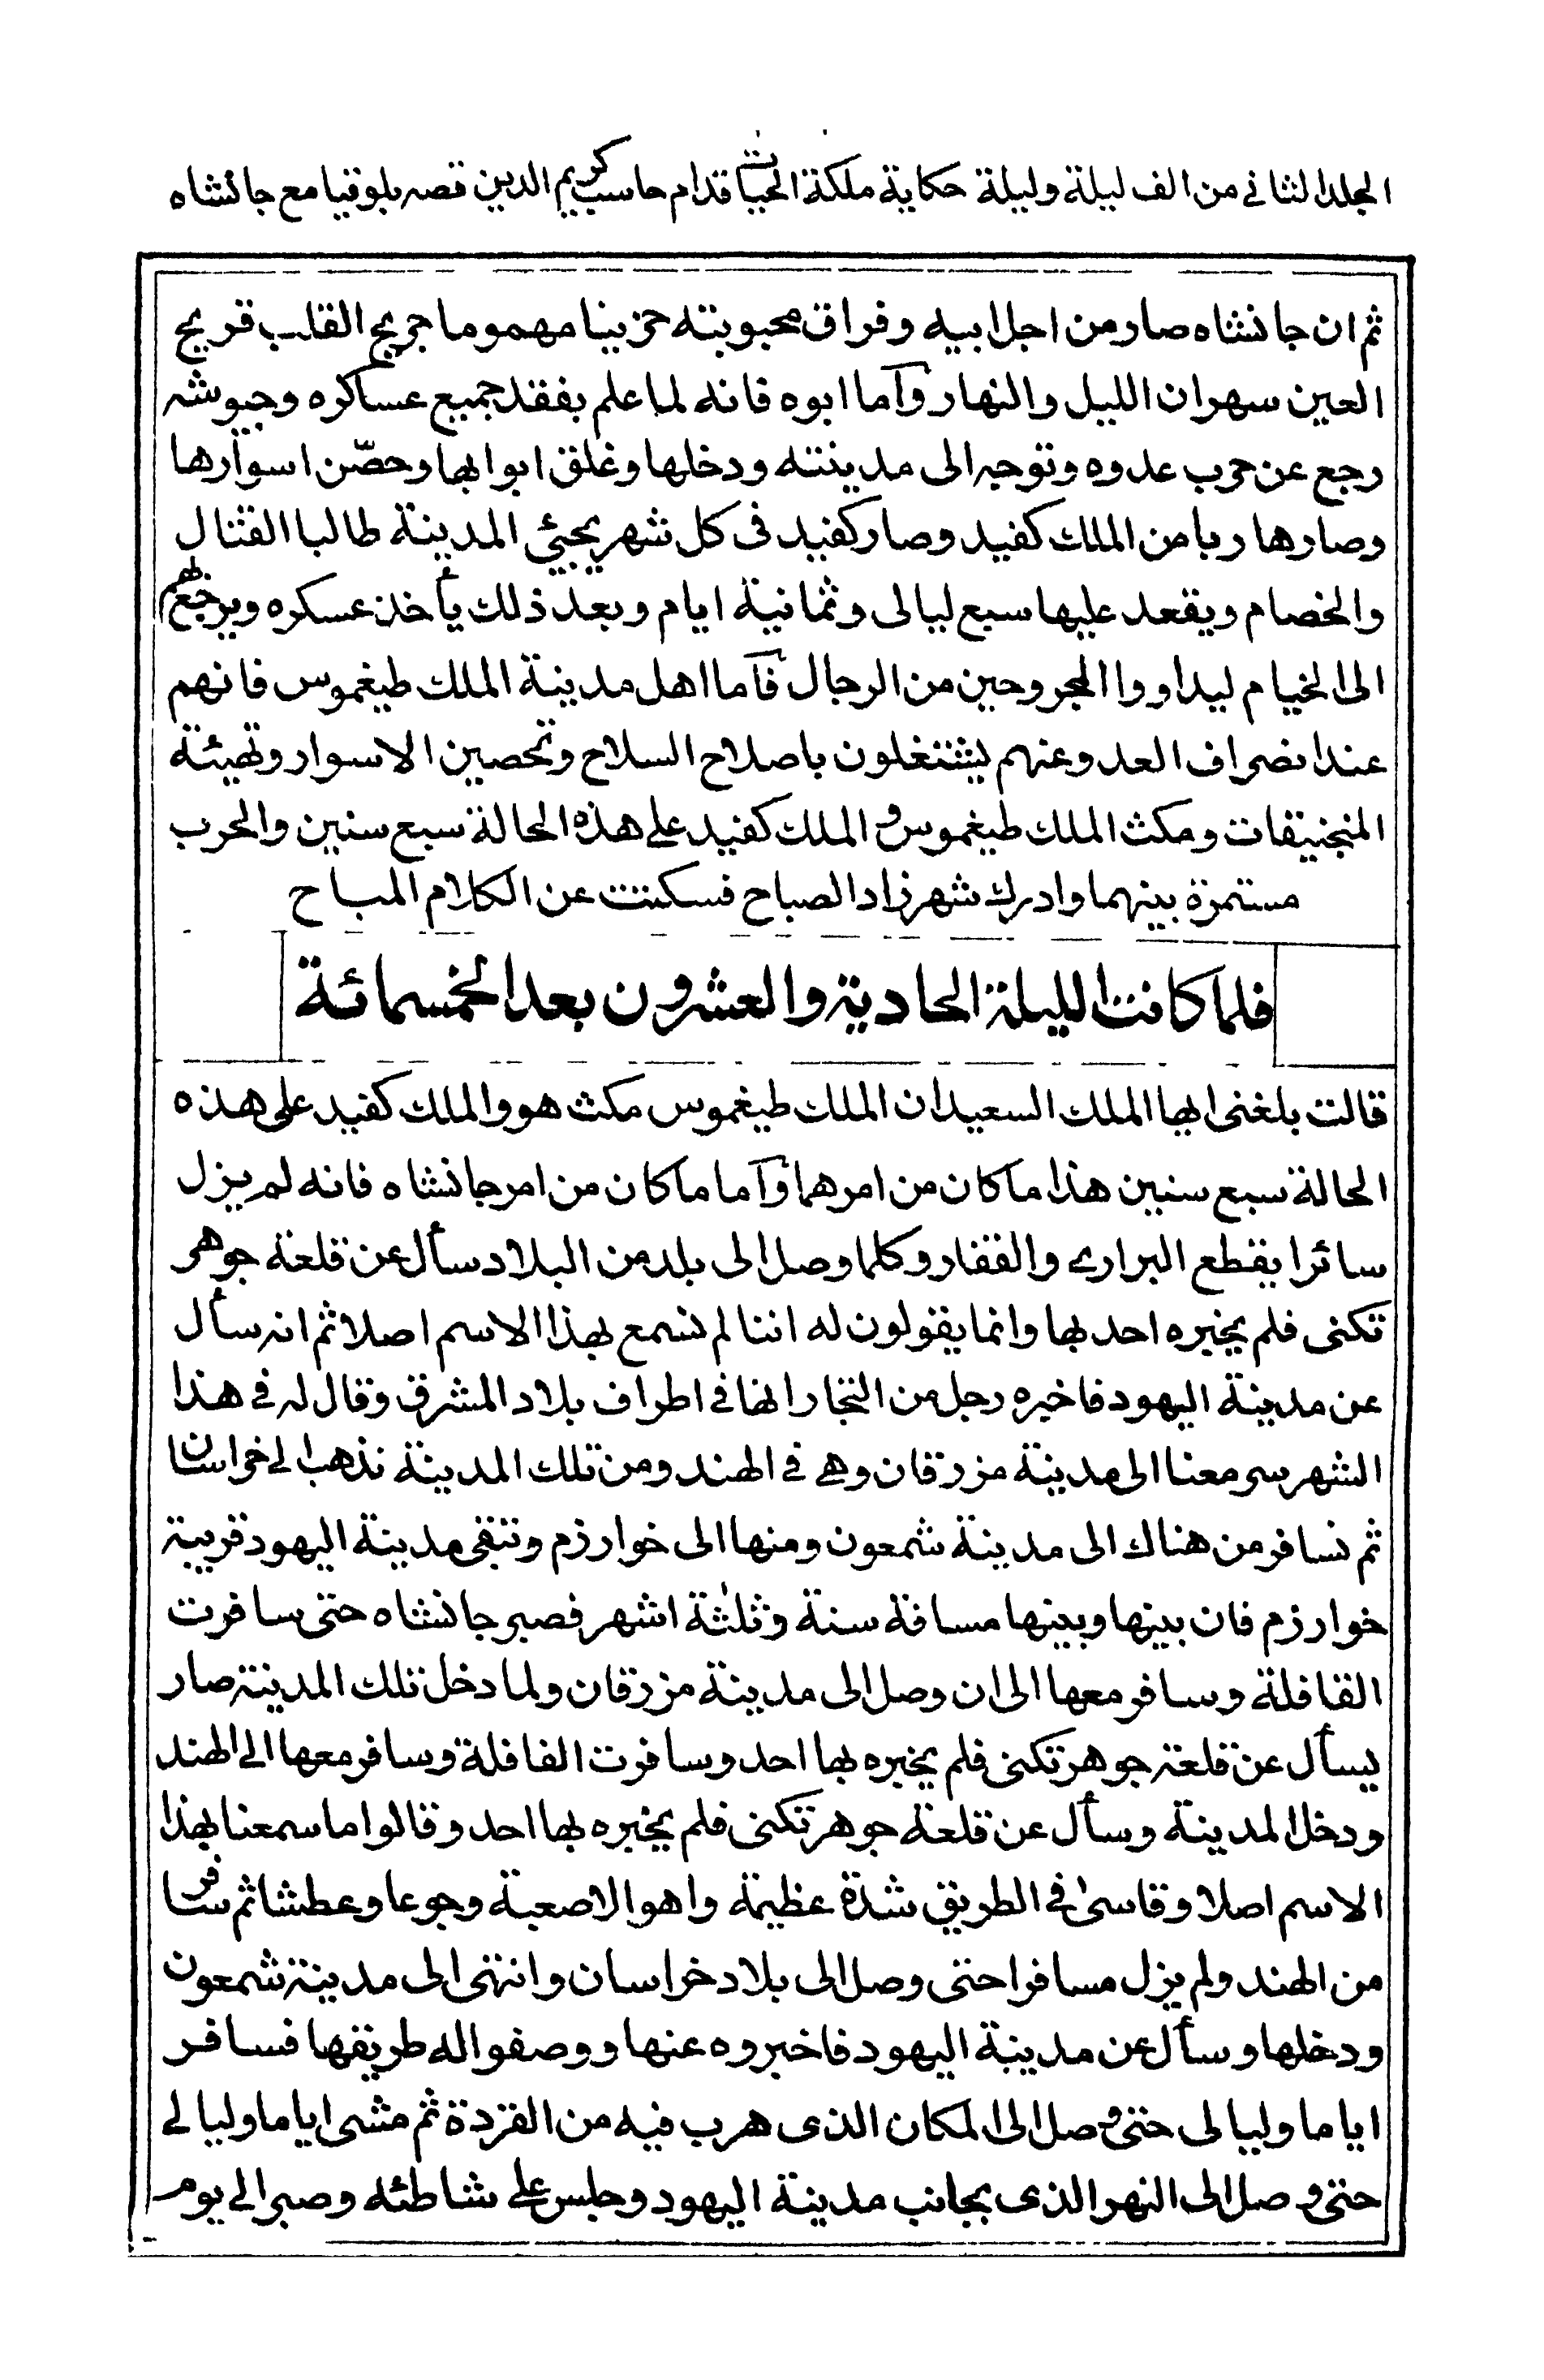 المجلد الثاني من الف ليلة وليلة حكاية ملكة الحيات قدام حاسب كريم الدين قصه بلوقيا مع جانشاه
ثم ان جانشاه صار من اجل ابيه وفراق محبوبته حزينا مهموما جريح القلب قريح
العين سهران الليل والنهار وآما ابوه فانه لما علم بفقد جميع عساكره وجيوشه
رجع عن حرب عدوه وتوجه الى مدينته ودخلها وغلق ابوابها وحصّن اسوارها
وصار هاربا من الملك كفيد وصار كفيد فى كل شهر يجيئ المدينة طالبا القتال
والخصام ويقعد عليها سبع ليالى وثمانية ايام وبعد ذلك يأخذ عسكره ويرجع بهم
الى الخيام ليداووا المجروحين من الرجال فآما اهل مدينة الملك طيغموس فانهم
عند انصراف العدو عنهم يشتغلون باصلاح السلاح وتحصين الاسوار وتهيئة
المنجنيقات ومكث الملك طيغموس و الملك كفيد على هذه الحالة سبع سنين والحرب
مستمرة بينهما وادرك شهرزاد الصباح فسكتت عن الكلام المباح
فلما كانت الليلة الحادية والعشرون بعد الخمسمائة
قالت بلغنى ايها الملك السعيد ان الملك طيغموس مكث هو والملك كفيد على هذه
الحالة سبع سنين هذا ما كان من امرهما وآما ما كان من امر جانشاه فانه لم يزل
سائرا يقطع البرارى والقفار وكلما وصل الى بلد من البلاد سأل عن قلعة جوهر
تكنى فلم يخبره احد بها وانما يقولون له اننا لم نسمع بهذا الاسم اصلا ثم انه سأل
عن مدينة اليهود فاخبره رجل من التجار انها في اطراف بلاد المشرق وقال له في هذا
الشهر سر معنا الى مدينة مزرقان وهي في الهند ومن تلك المدينة نذهب الى خراسان
ثم نسافر من هناك الى مدينة شمعون ومنها الى خوارزم وتبقى مدينة اليهود قريبة
خوارزم فان بينها وبينها مسافة سنة وثلٰثة اشهر فصبر جانشاه حتى سافرت
القافلة وسافر معها الى ان وصل الى مدينة مزرقان ولما دخل تلك المدينة صار
يسأل عن قلعة جوهر تكنى فلم يخبره بها احد وسافرت القافلة وسافر معها الى الهند
ودخل المدينة وسأل عن قلعة جوهر تكنى فلم يخبره بها احد وقالوا ما سمعنا بهذا
الاسم اصلا وقاسىٰ في الطريق شدة عظيمة واهوالا صعبة وجوعا وعطشا ثم سافر
من الهند ولم يزل مسافرا حتى وصل الى بلاد خراسان وانتهى الى مدينة شمعون
ودخلها وسأل عن مدينة اليهود فاخبروه عنها ووصفوا له طريقها فسافر
اياما وليالى حتى وصل الى المكان الذى هرب فيه من القردة ثم مشى اياما وليالي
حتى وصل الى النهر الذى بجانب مدينة اليهود وجلس على شاطئه وصبر الى يوم